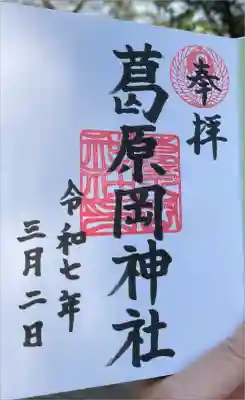 奉拝
葛原岡神社
令和七年
三月二日